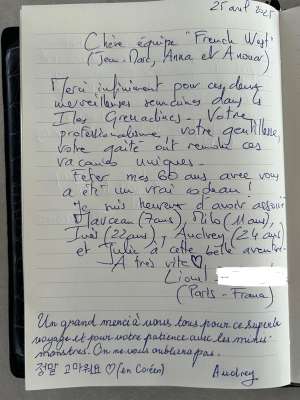 25 avril 2025
Chère équipe "French West"
(Jean-Marc, Anna et Anouar)
Merci infiniment pour ces deux
merveilleuses semaines dans les
Iles Grenadines. Votre
professionnalisme, votre gentillesse,
votre gaîté ont rendu ces
vacances uniques.
Fêter mes 60 ans avec vous
a été un vrai cadeau!
Je suis heureux d'avoir associé
Marceau (7ans), Milo (11 ans),
(22ans), Audrey (24 ans)
et Julie à cette belle aventure.
A très vite ♡
Lionel
(Paris - France)
Un grand merci à vous tous pour ce superbe
voyage et pour votre patience avec les minis
monstres. On ne vous oubliera pas.
정말 고마워요 ♡ (en Coréen) Audrey